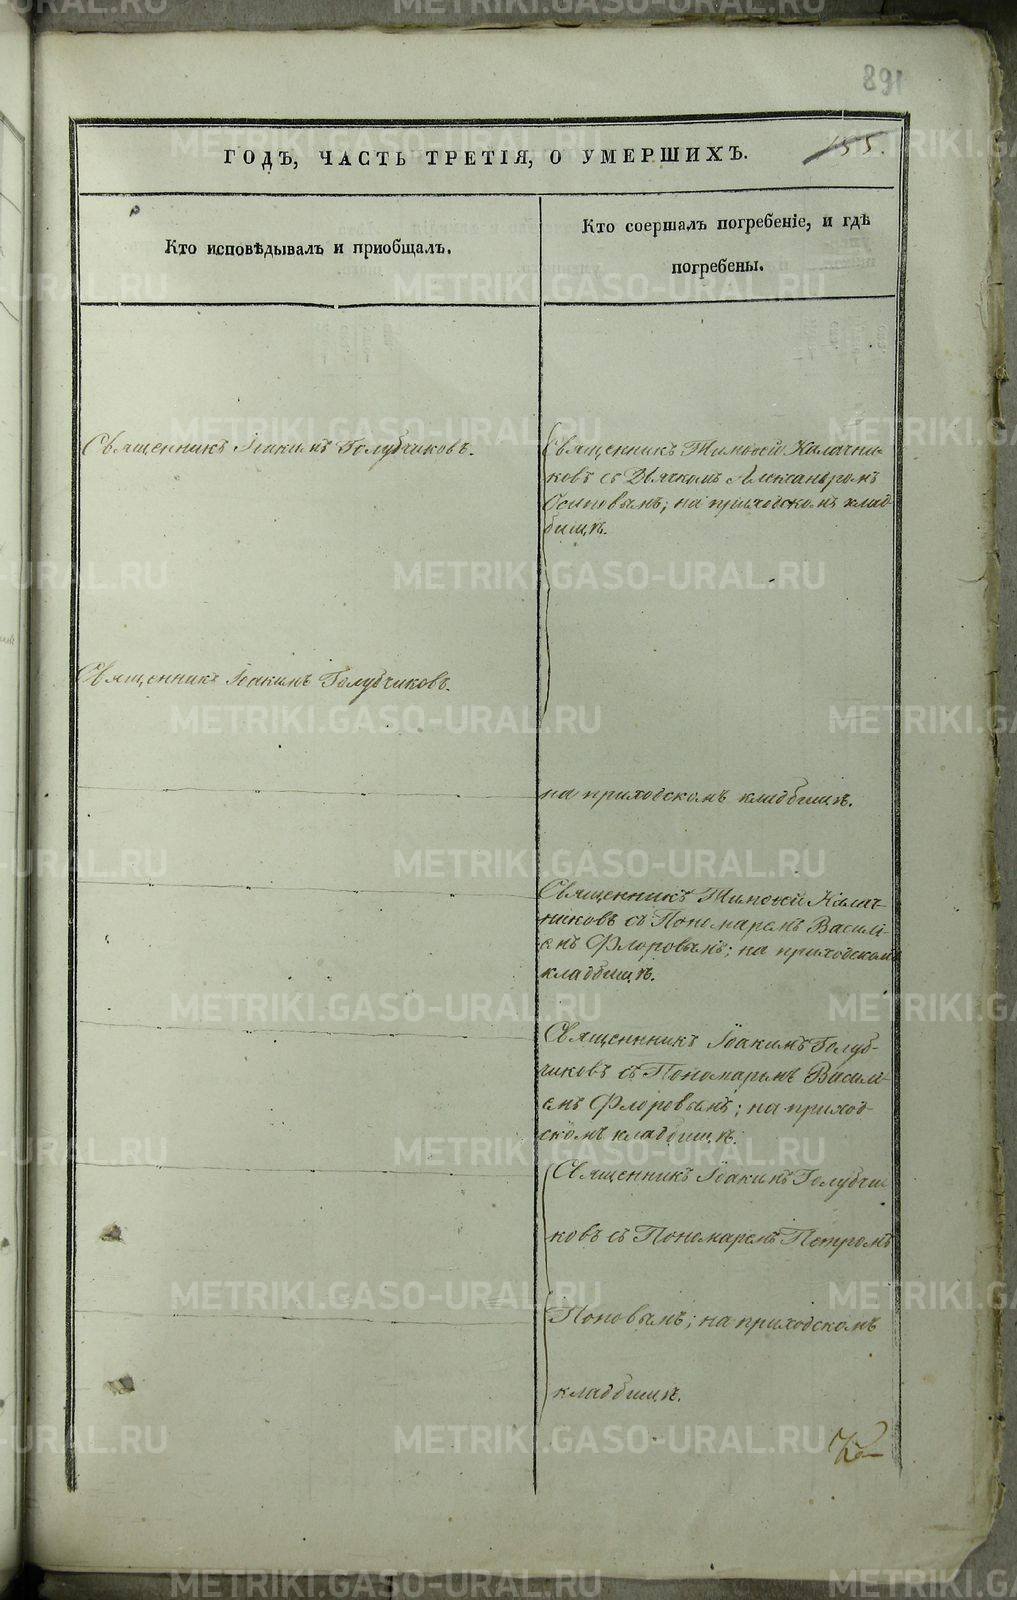 891
155.
ГОДЪ, ЧАСТЬ ТРЕТІЯ, О УМЕРШИХЪ.
Кто исповѣдывалъ и приобщалъ.
Кто соершалъ погребеніе, и гдѣ
погребены.
Священникъ Іоакимъ Голубчиковъ.
Священникъ Тимоѳей Калачни-
ковъ съ Дьячкомъ Александромъ
Осиповымъ; на приходскомъ клад-
бищѣ.
Священникъ Іоакимъ Голубчиковъ.
на приходскомъ кладбищѣ.
Священникъ Тимоѳей Калач-
никовъ съ Пономаремъ Василі-
емъ Флоровымъ; на приходскомъ
кладбищѣ.
Священникъ Іоакимъ Голуб-
чиковъ съ Пономаремъ Василі-
емъ Флоровымъ; на приход-
скомъ кладбищѣ.
Священникъ Іоакимъ Голубчи
ковъ съ Пономаремъ Петромъ
Поповымъ; на приходскомъ
кладбищѣ.
METRIKI.GASO-URAL.RU